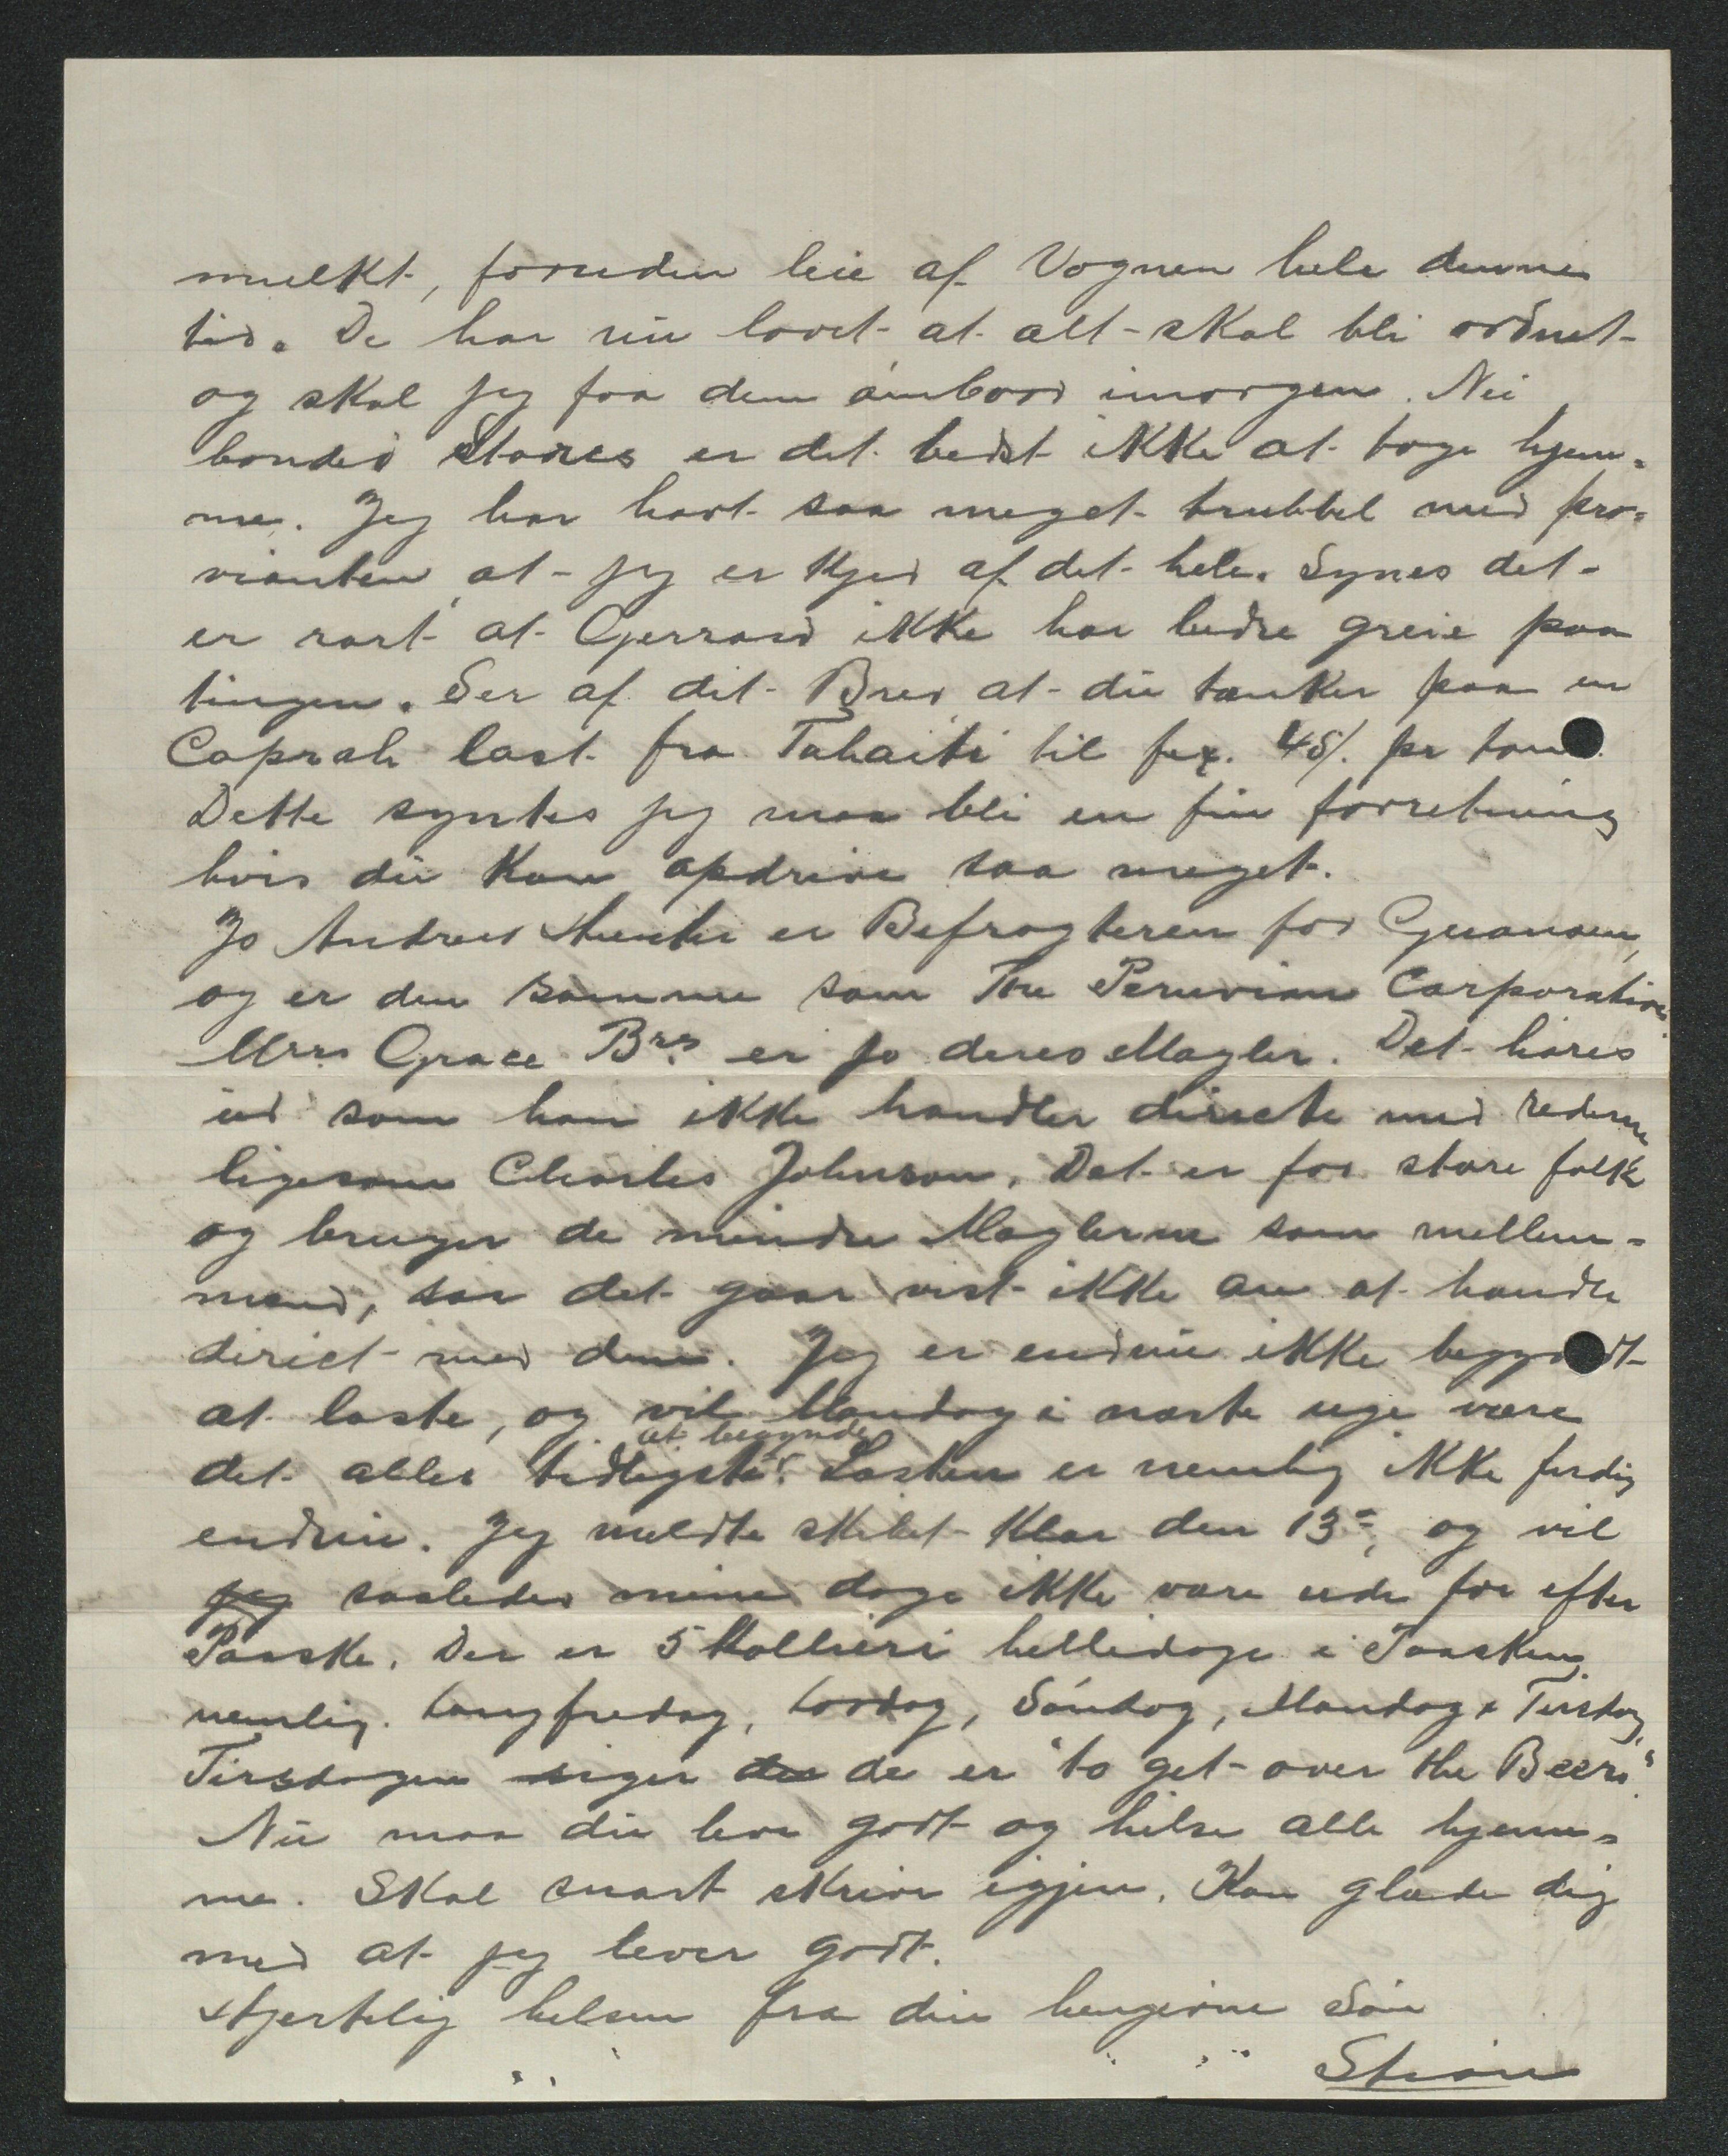 mulkt, foruden leie af Vognen hele denne
tid. De har nu lovet at alt skal bli ordnet
og skal jeg faa dem ombord imorgen. Nei
bonded Stores er det bedst ikke at tage hjem=
me. Jeg har havt saa meget trubbel med pro=
vianten, at jeg er kjed af det hele. Synes det
er rart at Gerrard ikke har bedre greie paa
tingen. Ser af dit Brev at du tænker paa en
Coprah last fra Tahaiti til 45/. pr ton
Dette syntes jeg maa bli en fin forretning
hvis du kan opdrive saa meget.
Jo Andrew er Befragteren for Guanoen,
og er den samme som The Peruvian Corporation.
Mrs Grace Brs er jo deres Mægler. Det høres
ud som han ikke handler directe med rederne
ligesom Charles Johnson. Det er for store folk
og bruger de mindre Mæglerne som mellem=
mænd, saa det gaar vist ikke an at handle
dirict med dem. Jeg er endnu ikke begyndt
at laste, og vil Mandag i næste uge være
det aller tidligste at begynde. Lasten er nemlig ikke færdig
endnu. Jeg meldte skibet klar den 13=, og vil
jeg saaledes mine dage ikke være ude før efter
Paaske. Der er 5 hellidage i Paasken,
nemlig. Langfredag, Lørdag, Søndag, Mandag & Tirsdag,
Tirsdagen siger de er "to get over the Beers"
Nu maa du leve godt og hilse alle hjem=
me. Skal snart skrive igjen. Kan glæde dig
med at jeg lever godt.
Hjertelig hilsen fra din hengivne Søn